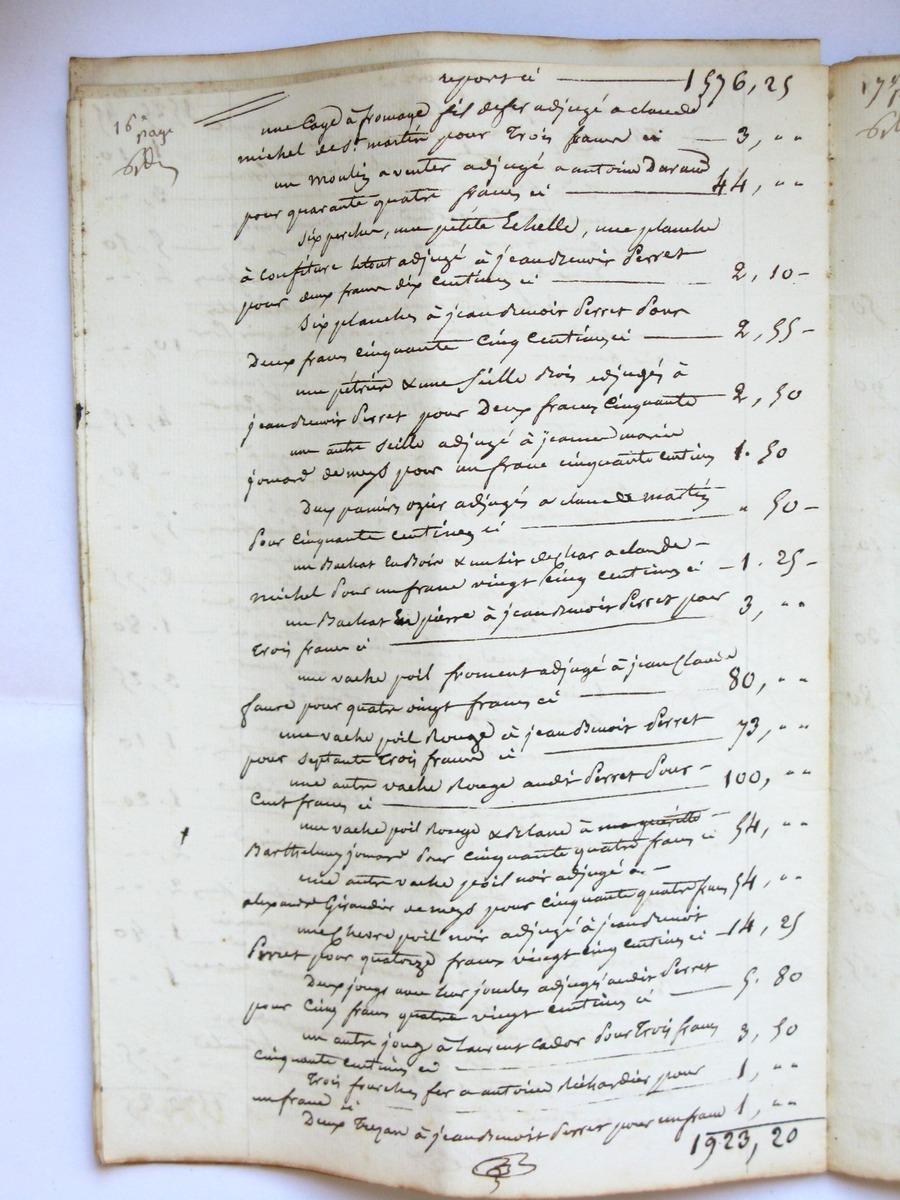 report ci 1576, 25
16e
page
une Cage à fromage fil de fer adjugé a claude
michel de St martin pour Trois francs ci 3, " "
un Moulin a venter adjugé a antoine Durand
pour quarante quatre francs ci 44, " "
Six perches, une petite Echelle, une planche
à Confiture le tout adjugé à jean Benoit Perret
pour deux francs dix Centimes ci 2, 10 -
Six planches à jean Benoit Perret Pour
Deux francs cinquante Cinq Centimes ci 2, 55 -
une pétrière & une Seille Bois adjugés à
jean Benoit Perret pour Deux francs Cinquante 2, 50
une autre Seille adjugé à jeanne marie
jomard de meys pour un franc cinquante centimes 1. 50
Deux paniers ozier adjugés a claude martin
Pour Cinquante centimes ci " 50 -
un Bachat en Bois & un de char a claude -
michel Pour un franc vingt Cinq centimes ci - 1. 25 -
un Bachat en pierre à jean Benoit Perret pour 3, " "
Trois francs ci
une vache poil froment adjugé à jean Claude
faure pour quatre vingt francs ci 80, " "
une vache poil Rouge à jean Benoit Perret
pour Septante Trois francs ci 73, " "
une autre vache Rouge audit Perret Pour - 100, " "
Cent francs ci
une vache poil Rouge & Blanc à marguerite -
Barthelemy jomard Pour Cinquante quatre francs ci 54, " "
une autre vache poil noir adjugé à -
alexandre Giraudier de meys pour cinquante quatre francs 54, " "
une Chevre poil noir adjugé à jean Benoit
Perret pour quatorze francs vingt cinq centimes ci - 14, 25
Deux jougs avec leur joucles adjugés audit Perret
pour Cinq francs quatre vingt centimes ci 5. 80
un autre joug à laurent Cador Pour Trois francs
Cinquante centimes ci 3, 50
Trois fourches fer a antoine Richardier pour
un franc ci 1, " "
Deux à jean Benoit Perret pour un franc 1, " "
1923, 20